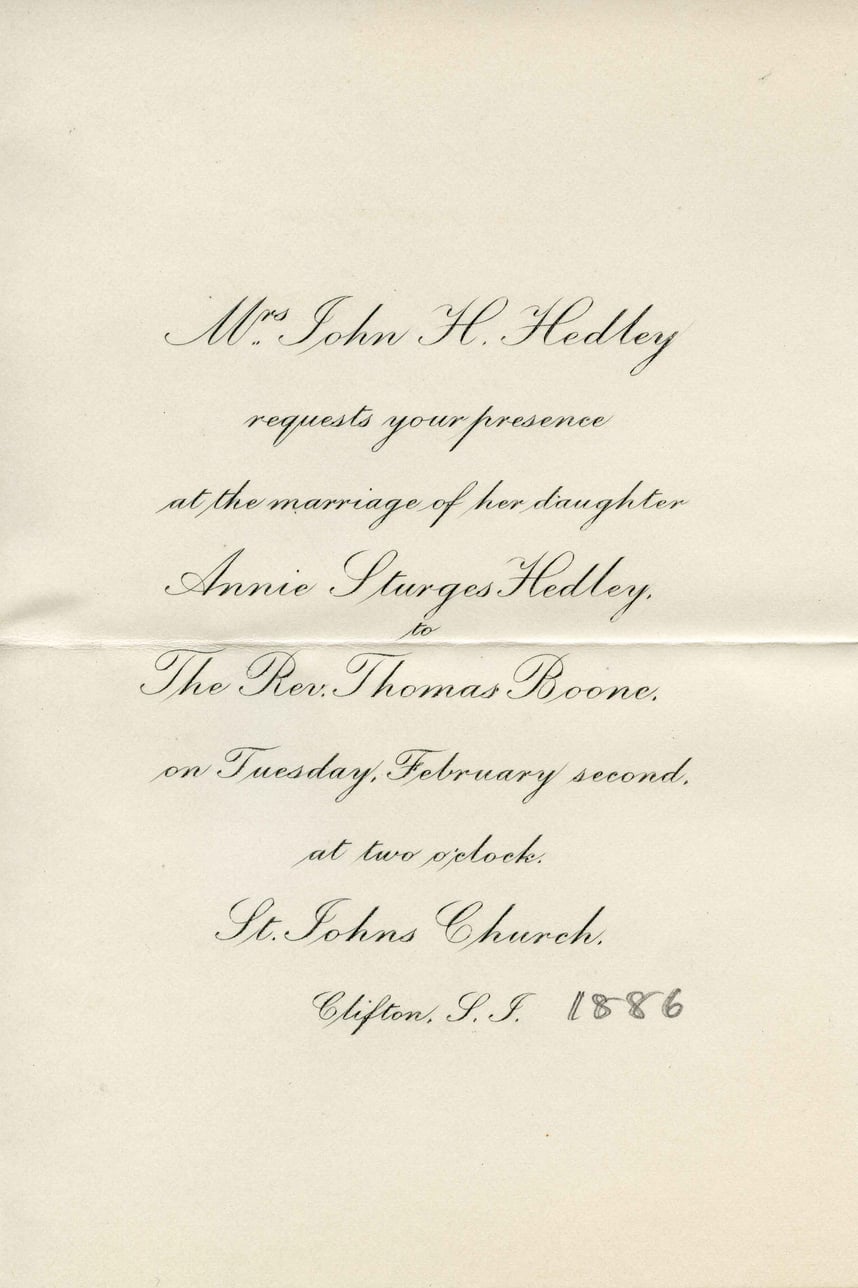 Mrs. John H. Hedley
requests your presence
at the marriage of her daughter
Annie Sturges Hedley,
to
The Rev. Thomas Boone,
on Tuesday, February second,
at two o'clock.
St. Johns Church,
Clifton, S. I. 1886